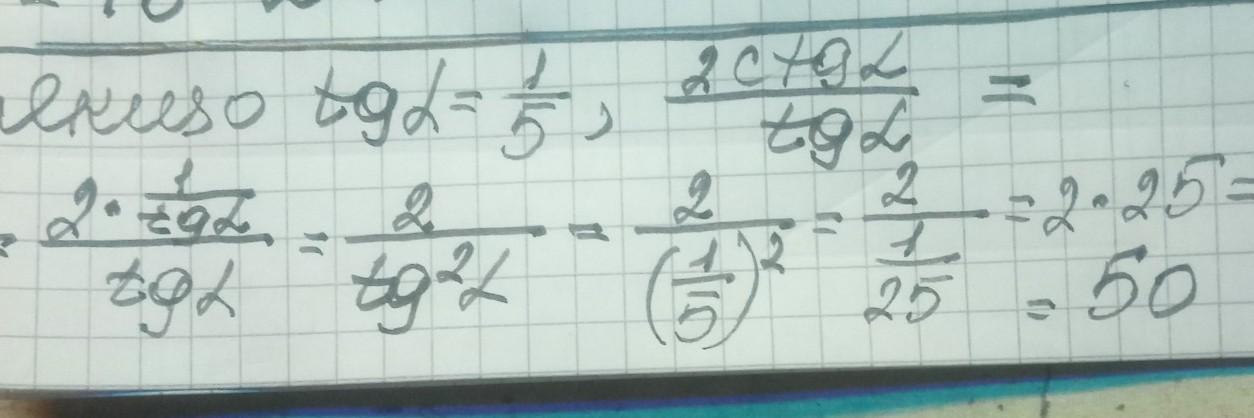 якщо tgα = 1/5, 2ctgα/tgα =
= (2 · 1/tgα)/tgα = 2/tg²α = 2/(1/5)² = 2/(1/25) = 2 · 25 =
= 50